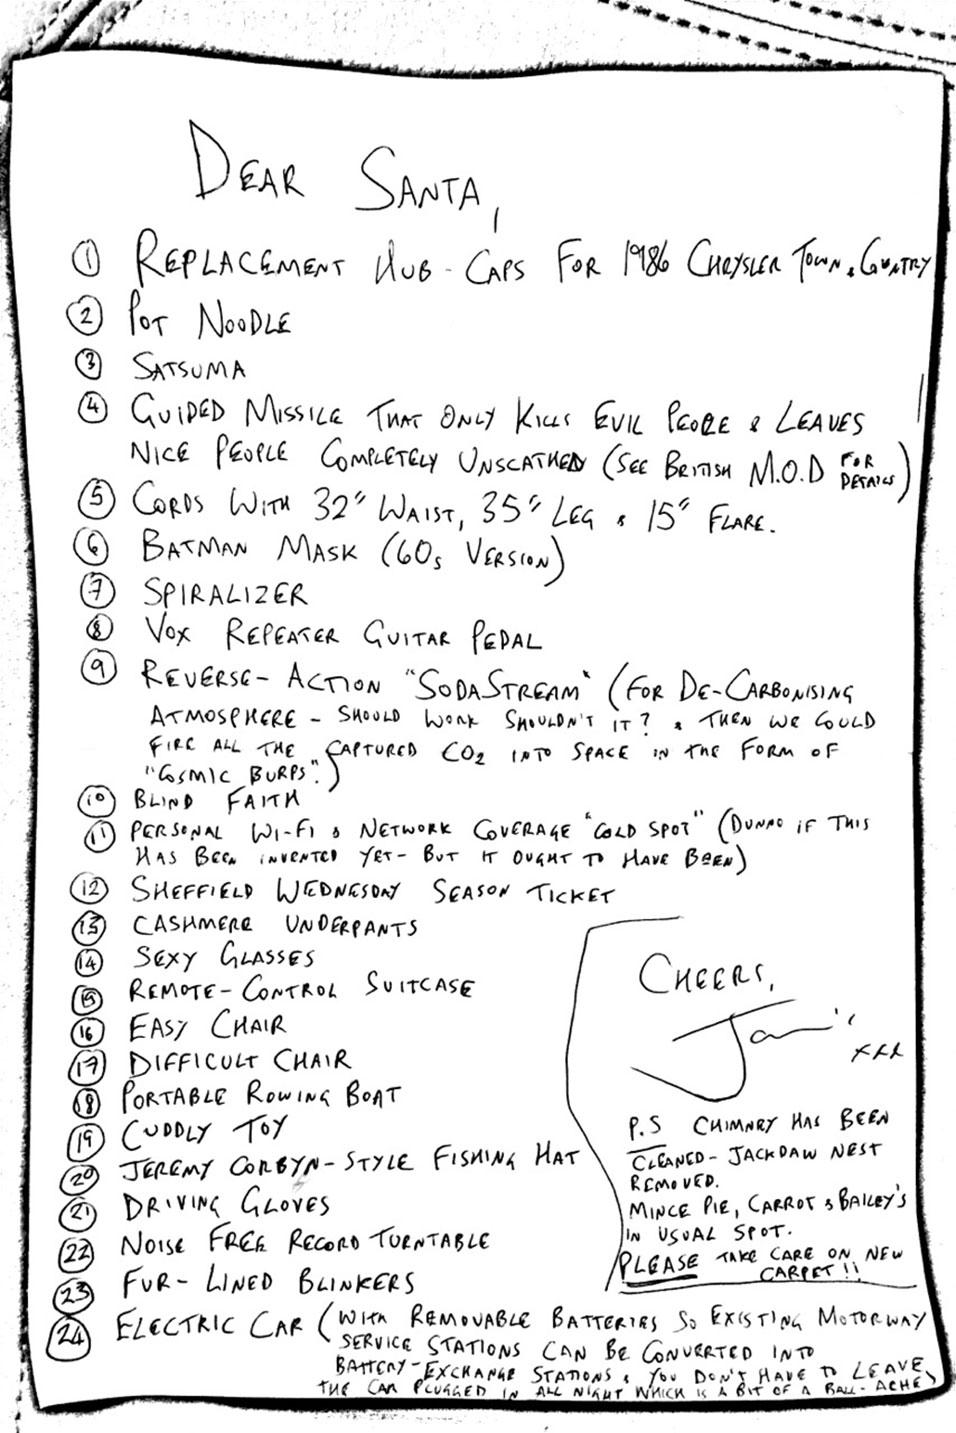 DEAR SANTA,
① REPLACEMENT HUB-CAPS FOR 1986 CHRYSLER TOWN & COUNTRY
② POT NOODLE
③ SATSUMA
④ GUIDED MISSILE THAT ONLY KILLS EVIL PEOPLE & LEAVES
NICE PEOPLE COMPLETELY UNSCATHED (SEE BRITISH M.O.D FOR DETAILS)
⑤ CORDS WITH 32" WAIST, 35" LEG & 15" FLARE.
⑥ BATMAN MASK (60s VERSION)
⑦ SPIRALIZER
⑧ VOX REPEATER GUITAR PEDAL
⑨ REVERSE-ACTION "SODASTREAM" (FOR DE-CARBONISING
ATMOSPHERE - SHOULD WORK SHOULDN'T IT? & THEN WE COULD
FIRE ALL THE CAPTURED CO2 INTO SPACE IN THE FORM OF
"COSMIC BURPS".)
⑩ BLIND FAITH
⑪ PERSONAL WI-FI & NETWORK COVERAGE "COLD SPOT" (DUNNO IF THIS
HAS BEEN INVENTED YET - BUT IT OUGHT TO HAVE BEEN)
⑫ SHEFFIELD WEDNESDAY SEASON TICKET
⑬ CASHMERE UNDERPANTS
⑭ SEXY GLASSES
⑮ REMOTE-CONTROL SUITCASE
⑯ EASY CHAIR
⑰ DIFFICULT CHAIR
⑱ PORTABLE ROWING BOAT
⑲ CUDDLY TOY
⑳ JEREMY CORBYN-STYLE FISHING HAT
㉑ DRIVING GLOVES
㉒ NOISE FREE RECORD TURNTABLE
㉓ FUR-LINED BLINKERS
㉔ ELECTRIC CAR (WITH REMOVABLE BATTERIES SO EXISTING MOTORWAY
SERVICE STATIONS CAN BE CONVERTED INTO
BATTERY-EXCHANGE STATIONS & YOU DON'T HAVE TO LEAVE
THE CAR PLUGGED IN ALL NIGHT WHICH IS A BIT OF A BALL-ACHE)
CHEERS,
xxx
P.S CHIMNEY HAS BEEN
CLEANED - JACKDAW NEST
REMOVED.
MINCE PIE, CARROT & BAILEY'S
IN USUAL SPOT.
PLEASE TAKE CARE ON NEW
CARPET!!